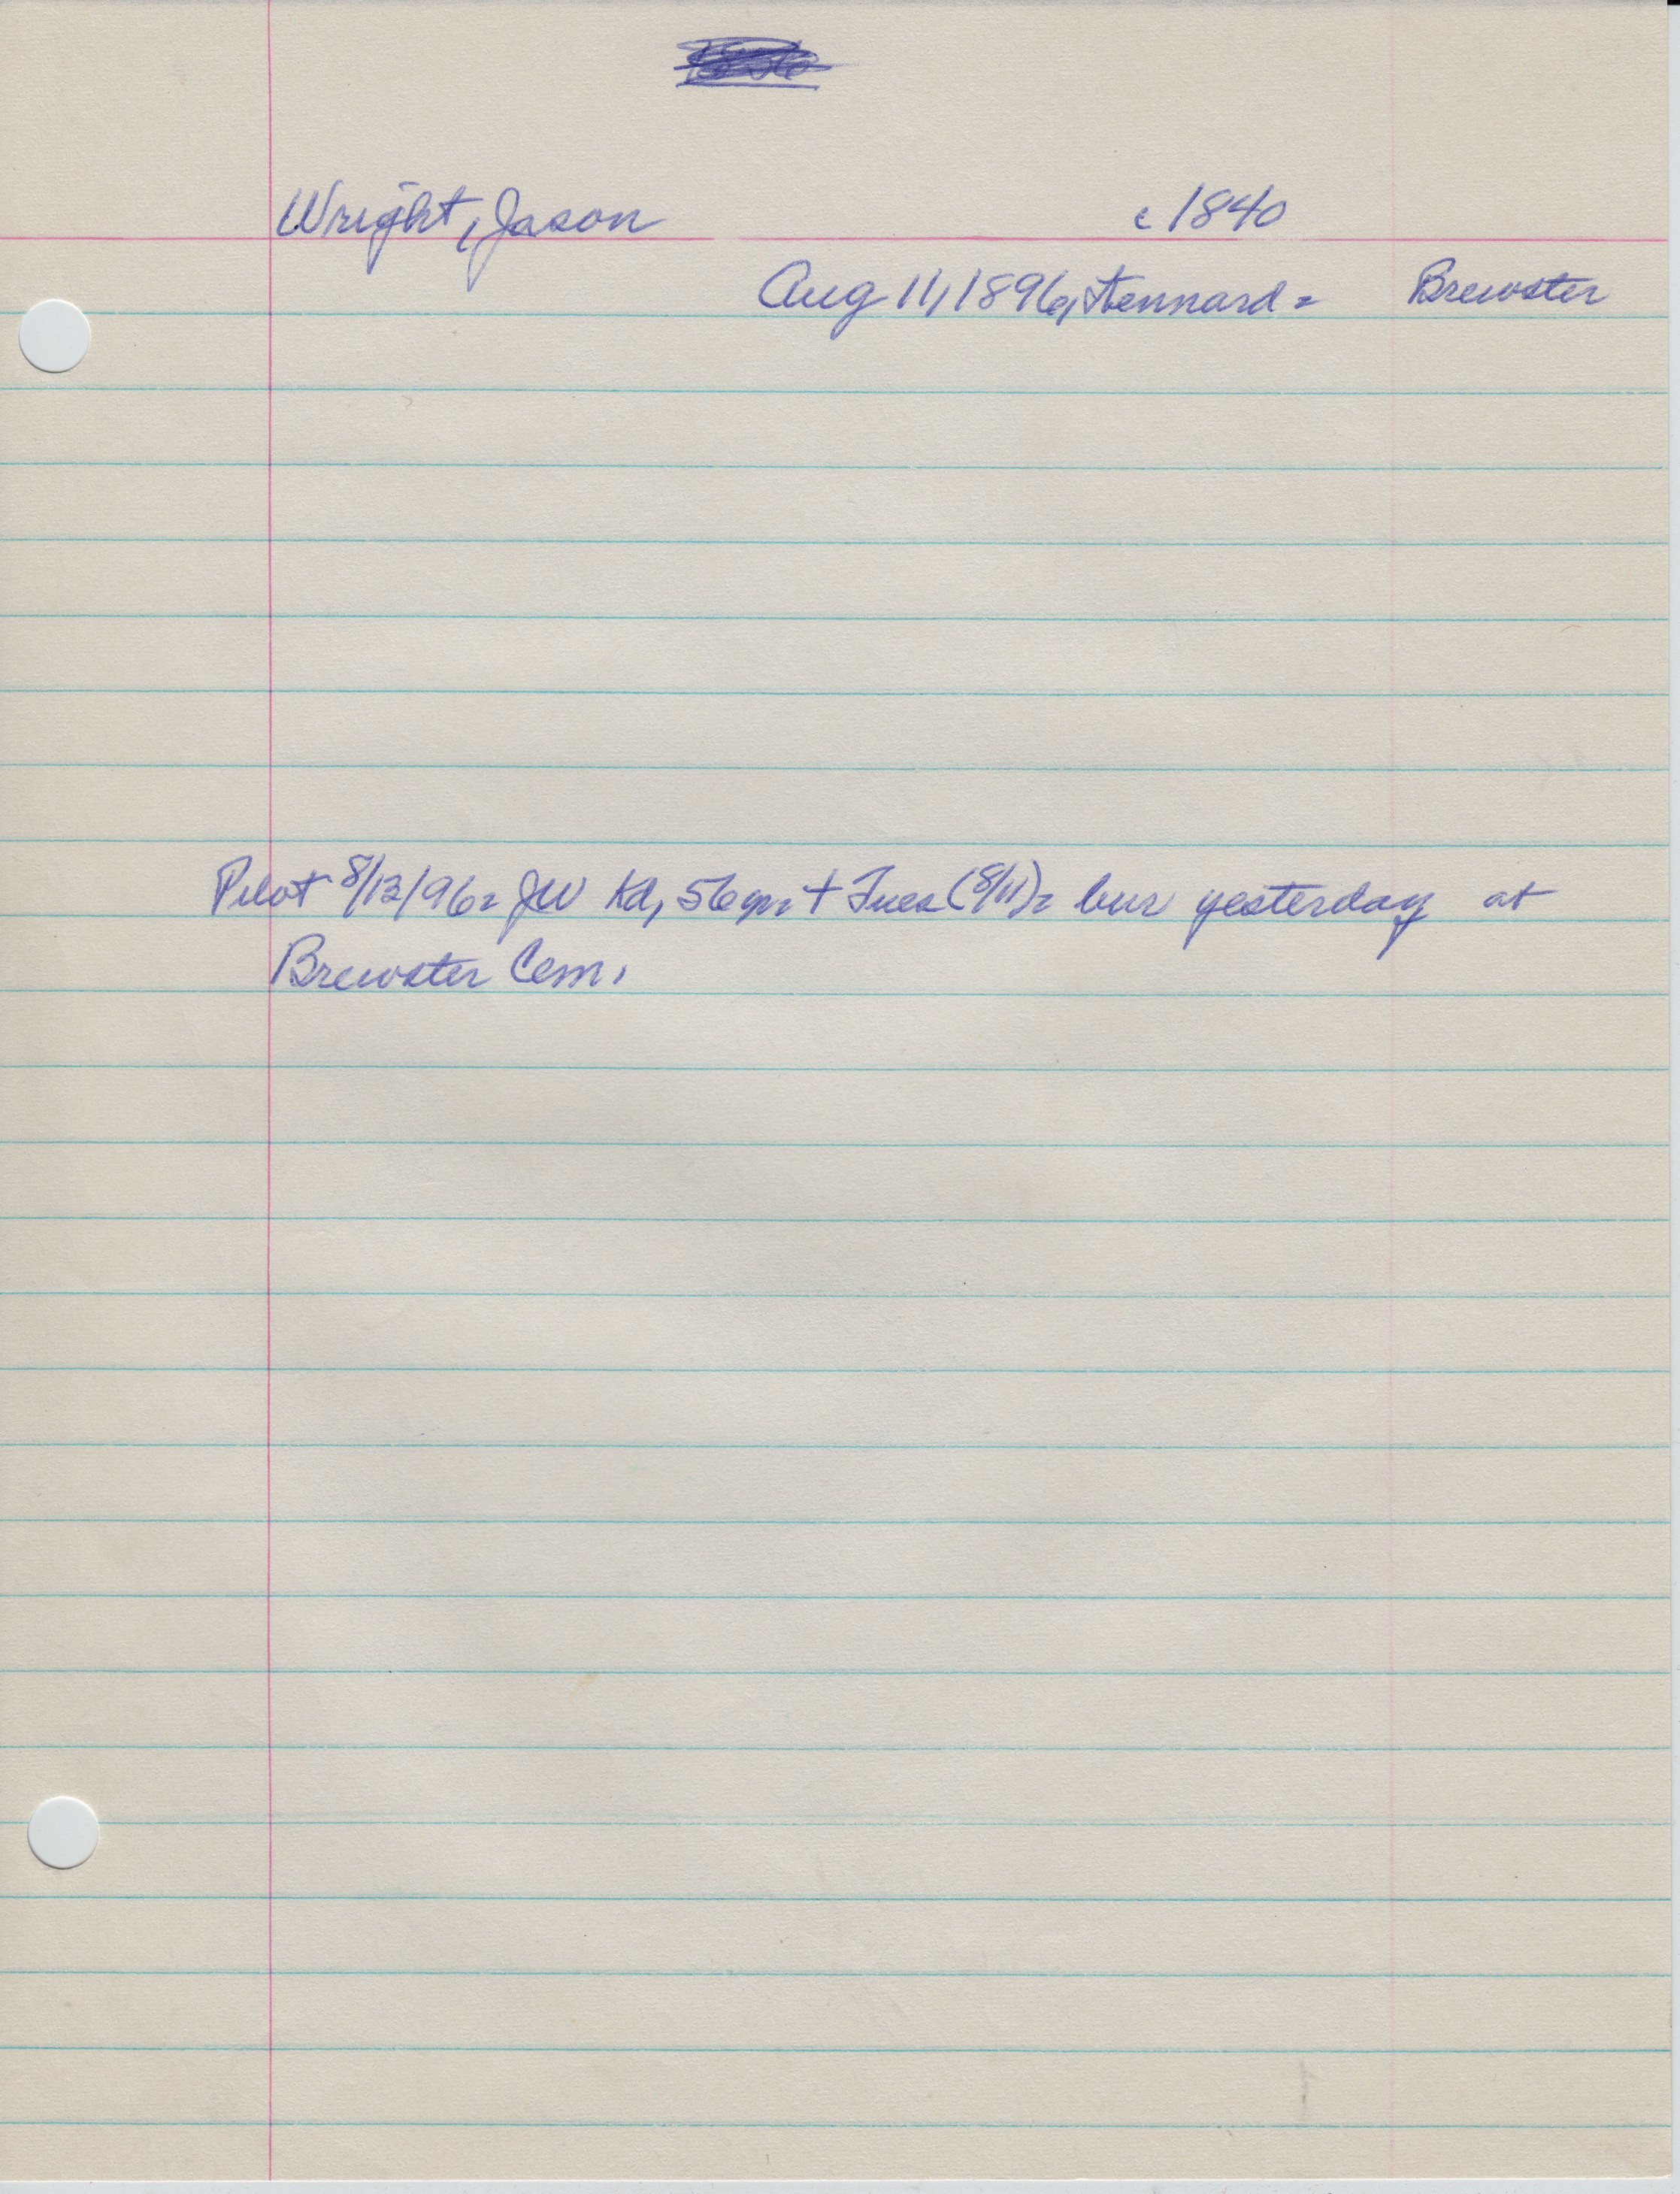 Wright, Jason c 1840
Aug 11, 1896, Kennard = Brewster
Pilot 8/13/96 = JW Kd, 56 yr. + Tues (8/11) = bur yesterday at
Brewster Cem.